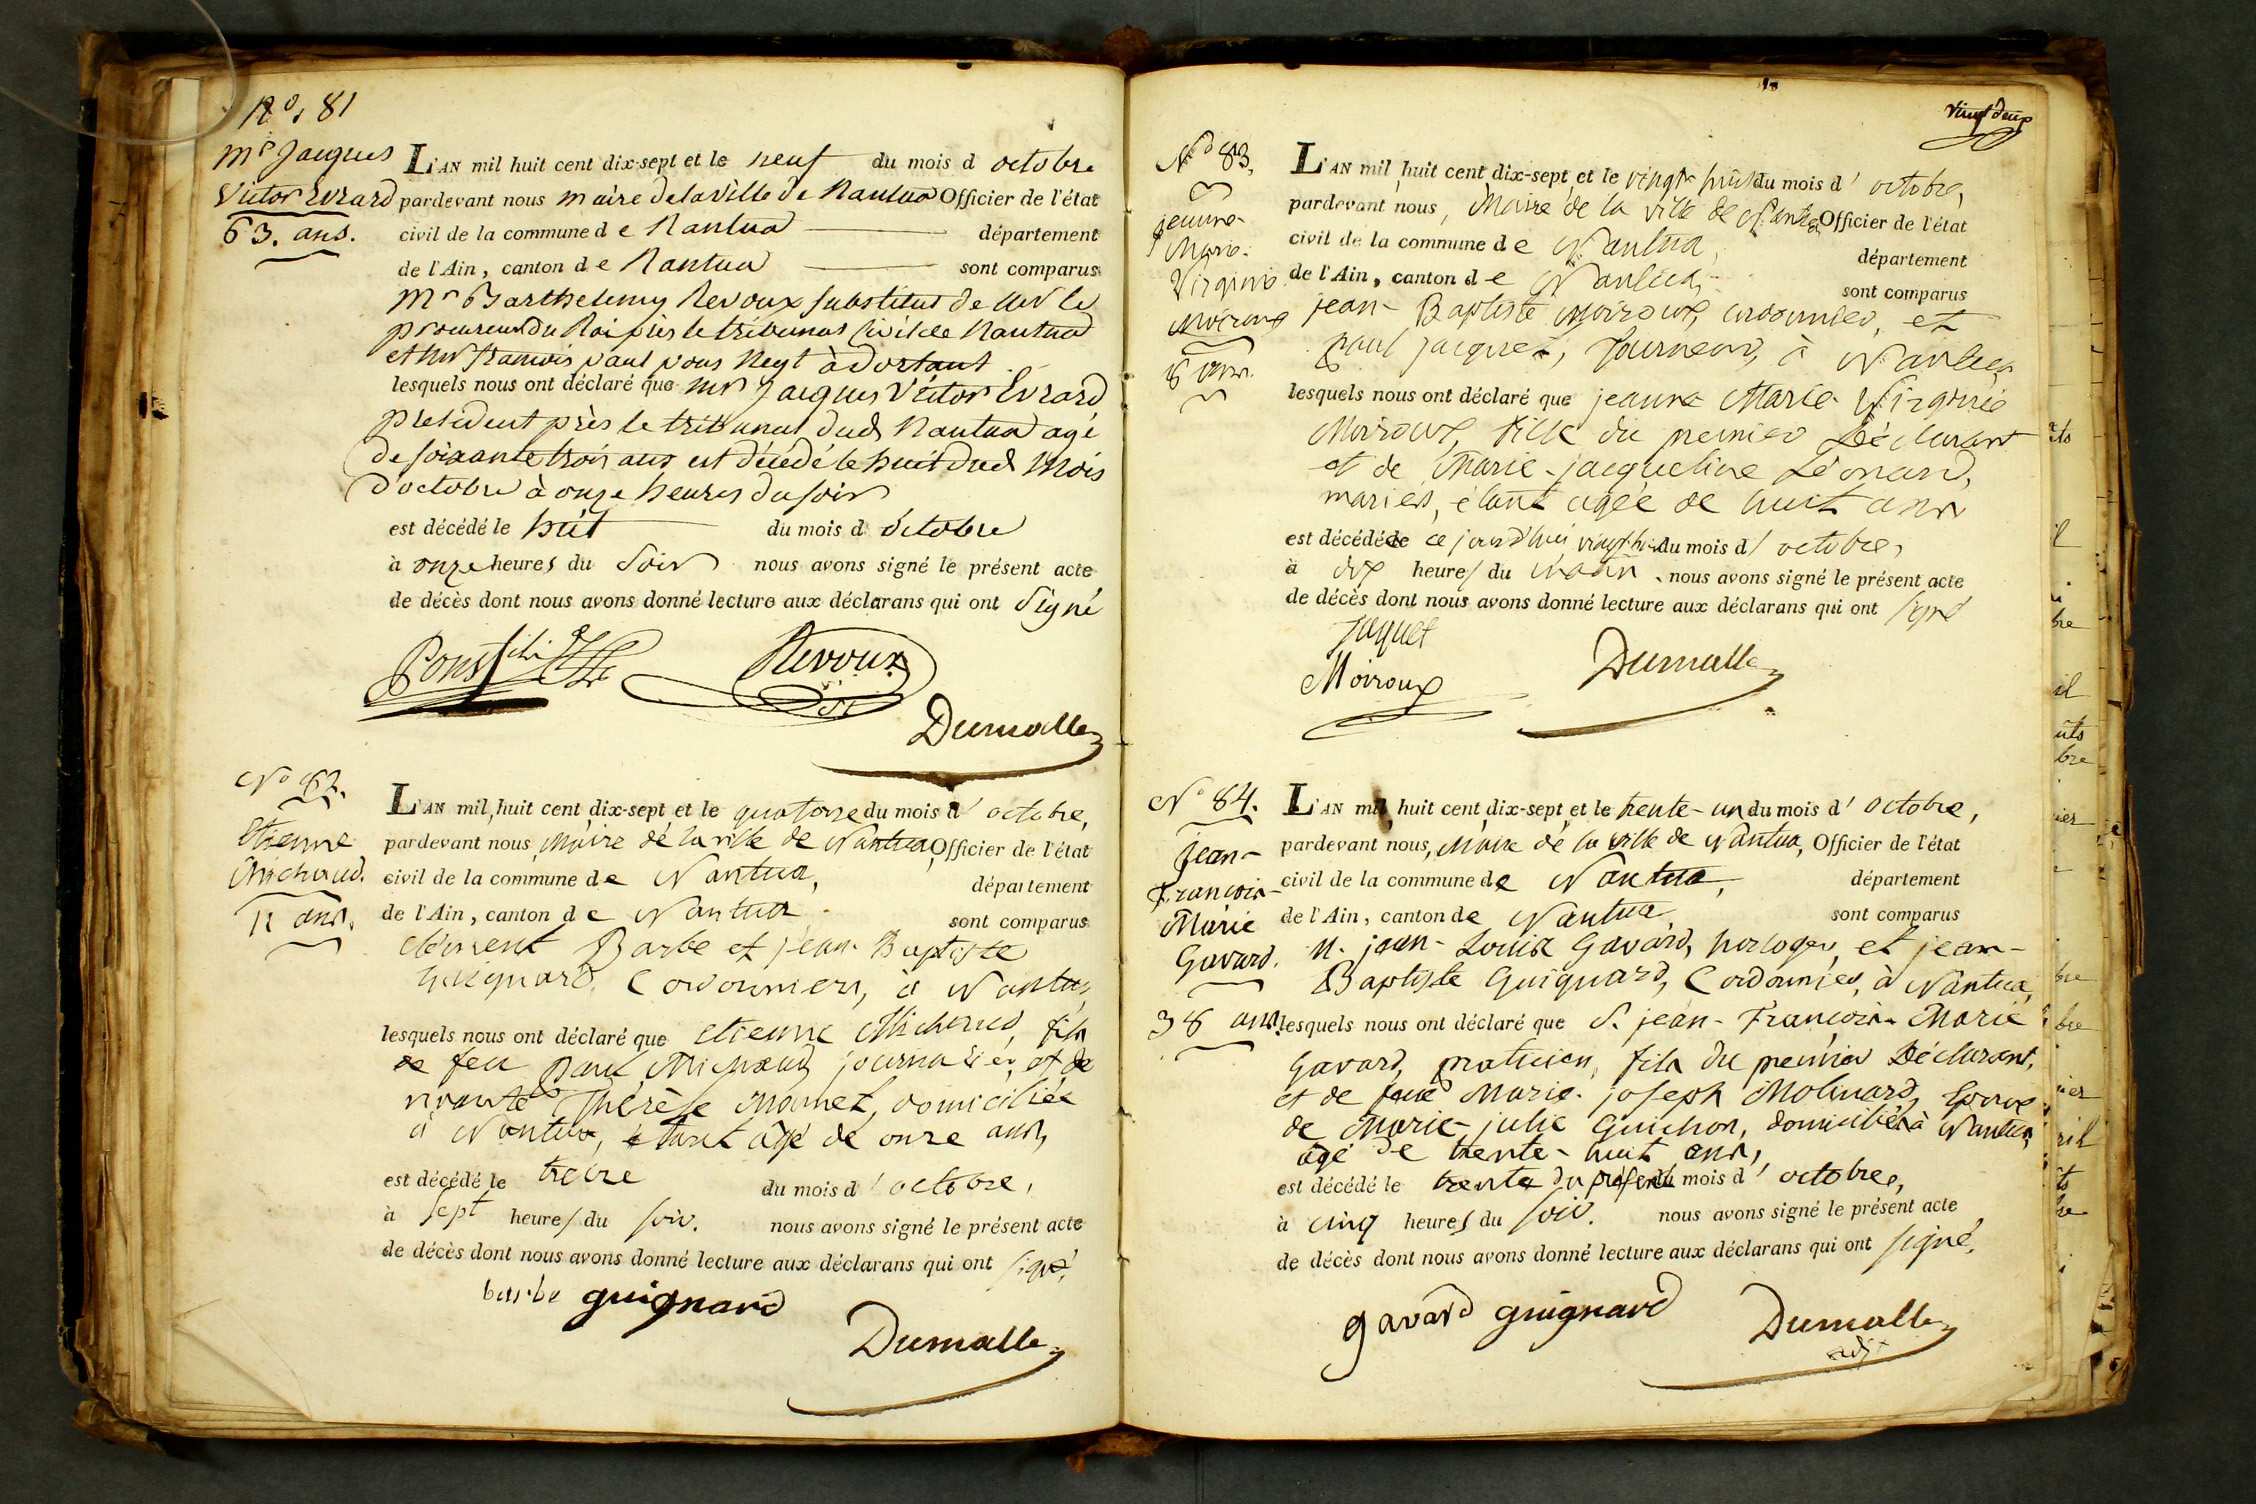 No. 81
Mr Jacques
Victor Evrard
63. ans.
L'AN mil huit cent dix-sept et le neuf du mois d octobre
pardevant nous maire de la ville de Nantua Officier de l'état
civil de la commune de Nantua département
de l'Ain, canton de Nantua sont comparus
Mr Barthelemy Revoux substitut de Mr le
procureur du Roi près le tribunal civil de Nantua
et Mr françois paul pons Negt à dortant
lesquels nous ont déclaré que Mr Jacques Victor Evrard
president près le tribunal dud Nantua agé
de soixante trois ans est décédé le huit dud mois
d'octobre à onze heures du soir
est décédé le huit du mois d octobre
à onze heures du soir nous avons signé le présent acte
de décès dont nous avons donné lecture aux déclarans qui ont signé
Pons Revoux
Dumolle
No 82.
Etienne
Michaud.
11 ans.
L'AN mil huit cent dix-sept et le quatorze du mois d'octobre,
pardevant nous, Maire de la ville de Nantua, Officier de l'état
civil de la commune de Nantua, département
de l'Ain, canton de Nantua sont comparus
Clément Barbe et jean-Baptiste
Guignard, Cordonniers, à Nantua,
lesquels nous ont déclaré que etienne Michaud, fils
de feu paul Michaud journalier, et de
vivante Thérèse Monnet, domiciliée
à Nantua, étant agé de onze ans,
est décédé le treize du mois d'octobre,
à sept heures du soir. nous avons signé le présent acte
de décès dont nous avons donné lecture aux déclarans qui ont signé.
barbe guignard
Dumolle
vingt deux
No 83.
jeanne-
Marie-
Virginie
Moiroux
8 ans.
L'AN mil huit cent dix-sept et le vingt huit du mois d'octobre,
pardevant nous, Maire de la ville de Nantua Officier de l'état
civil de la commune de Nantua, département
de l'Ain, canton de Nantua, sont comparus
jean-Baptiste Moiroux, cordonnier, et
paul jacquet, Tourneur, à Nantua,
lesquels nous ont déclaré que jeanne Marie Virginie
Moiroux, fille du premier Déclarant
et de Marie-jacqueline Léonard,
mariés, étant agée de huit ans
est décédée ce jourd'hui vingt huit du mois d'octobre,
à dix heures du matin, nous avons signé le présent acte
de décès dont nous avons donné lecture aux déclarans qui ont signé
Jaquet
Moiroux Dumolle
No 84.
jean-
François-
Marie
Gavard.
38 ans.
L'AN mil huit cent dix-sept et le trente-un du mois d'octobre,
pardevant nous, Maire de la ville de Nantua, Officier de l'état
civil de la commune de Nantua, département
de l'Ain, canton de Nantua, sont comparus
M. jean-Louis Gavard, horloger, et jean-
Baptiste Guignard, Cordonnier, à Nantua,
lesquels nous ont déclaré que S. jean-François-Marie
Gavard, praticien, fils du premier Déclarant,
et de feue Marie-joseph Molinard, Epoux
de Marie-julie Guichon, domicilié à Nantua,
agé de trente-huit ans,
est décédé le trente du présent mois d'octobre,
à cinq heures du soir. nous avons signé le présent acte
de décès dont nous avons donné lecture aux déclarans qui ont signé.
gavard guignard Dumolle
adjt